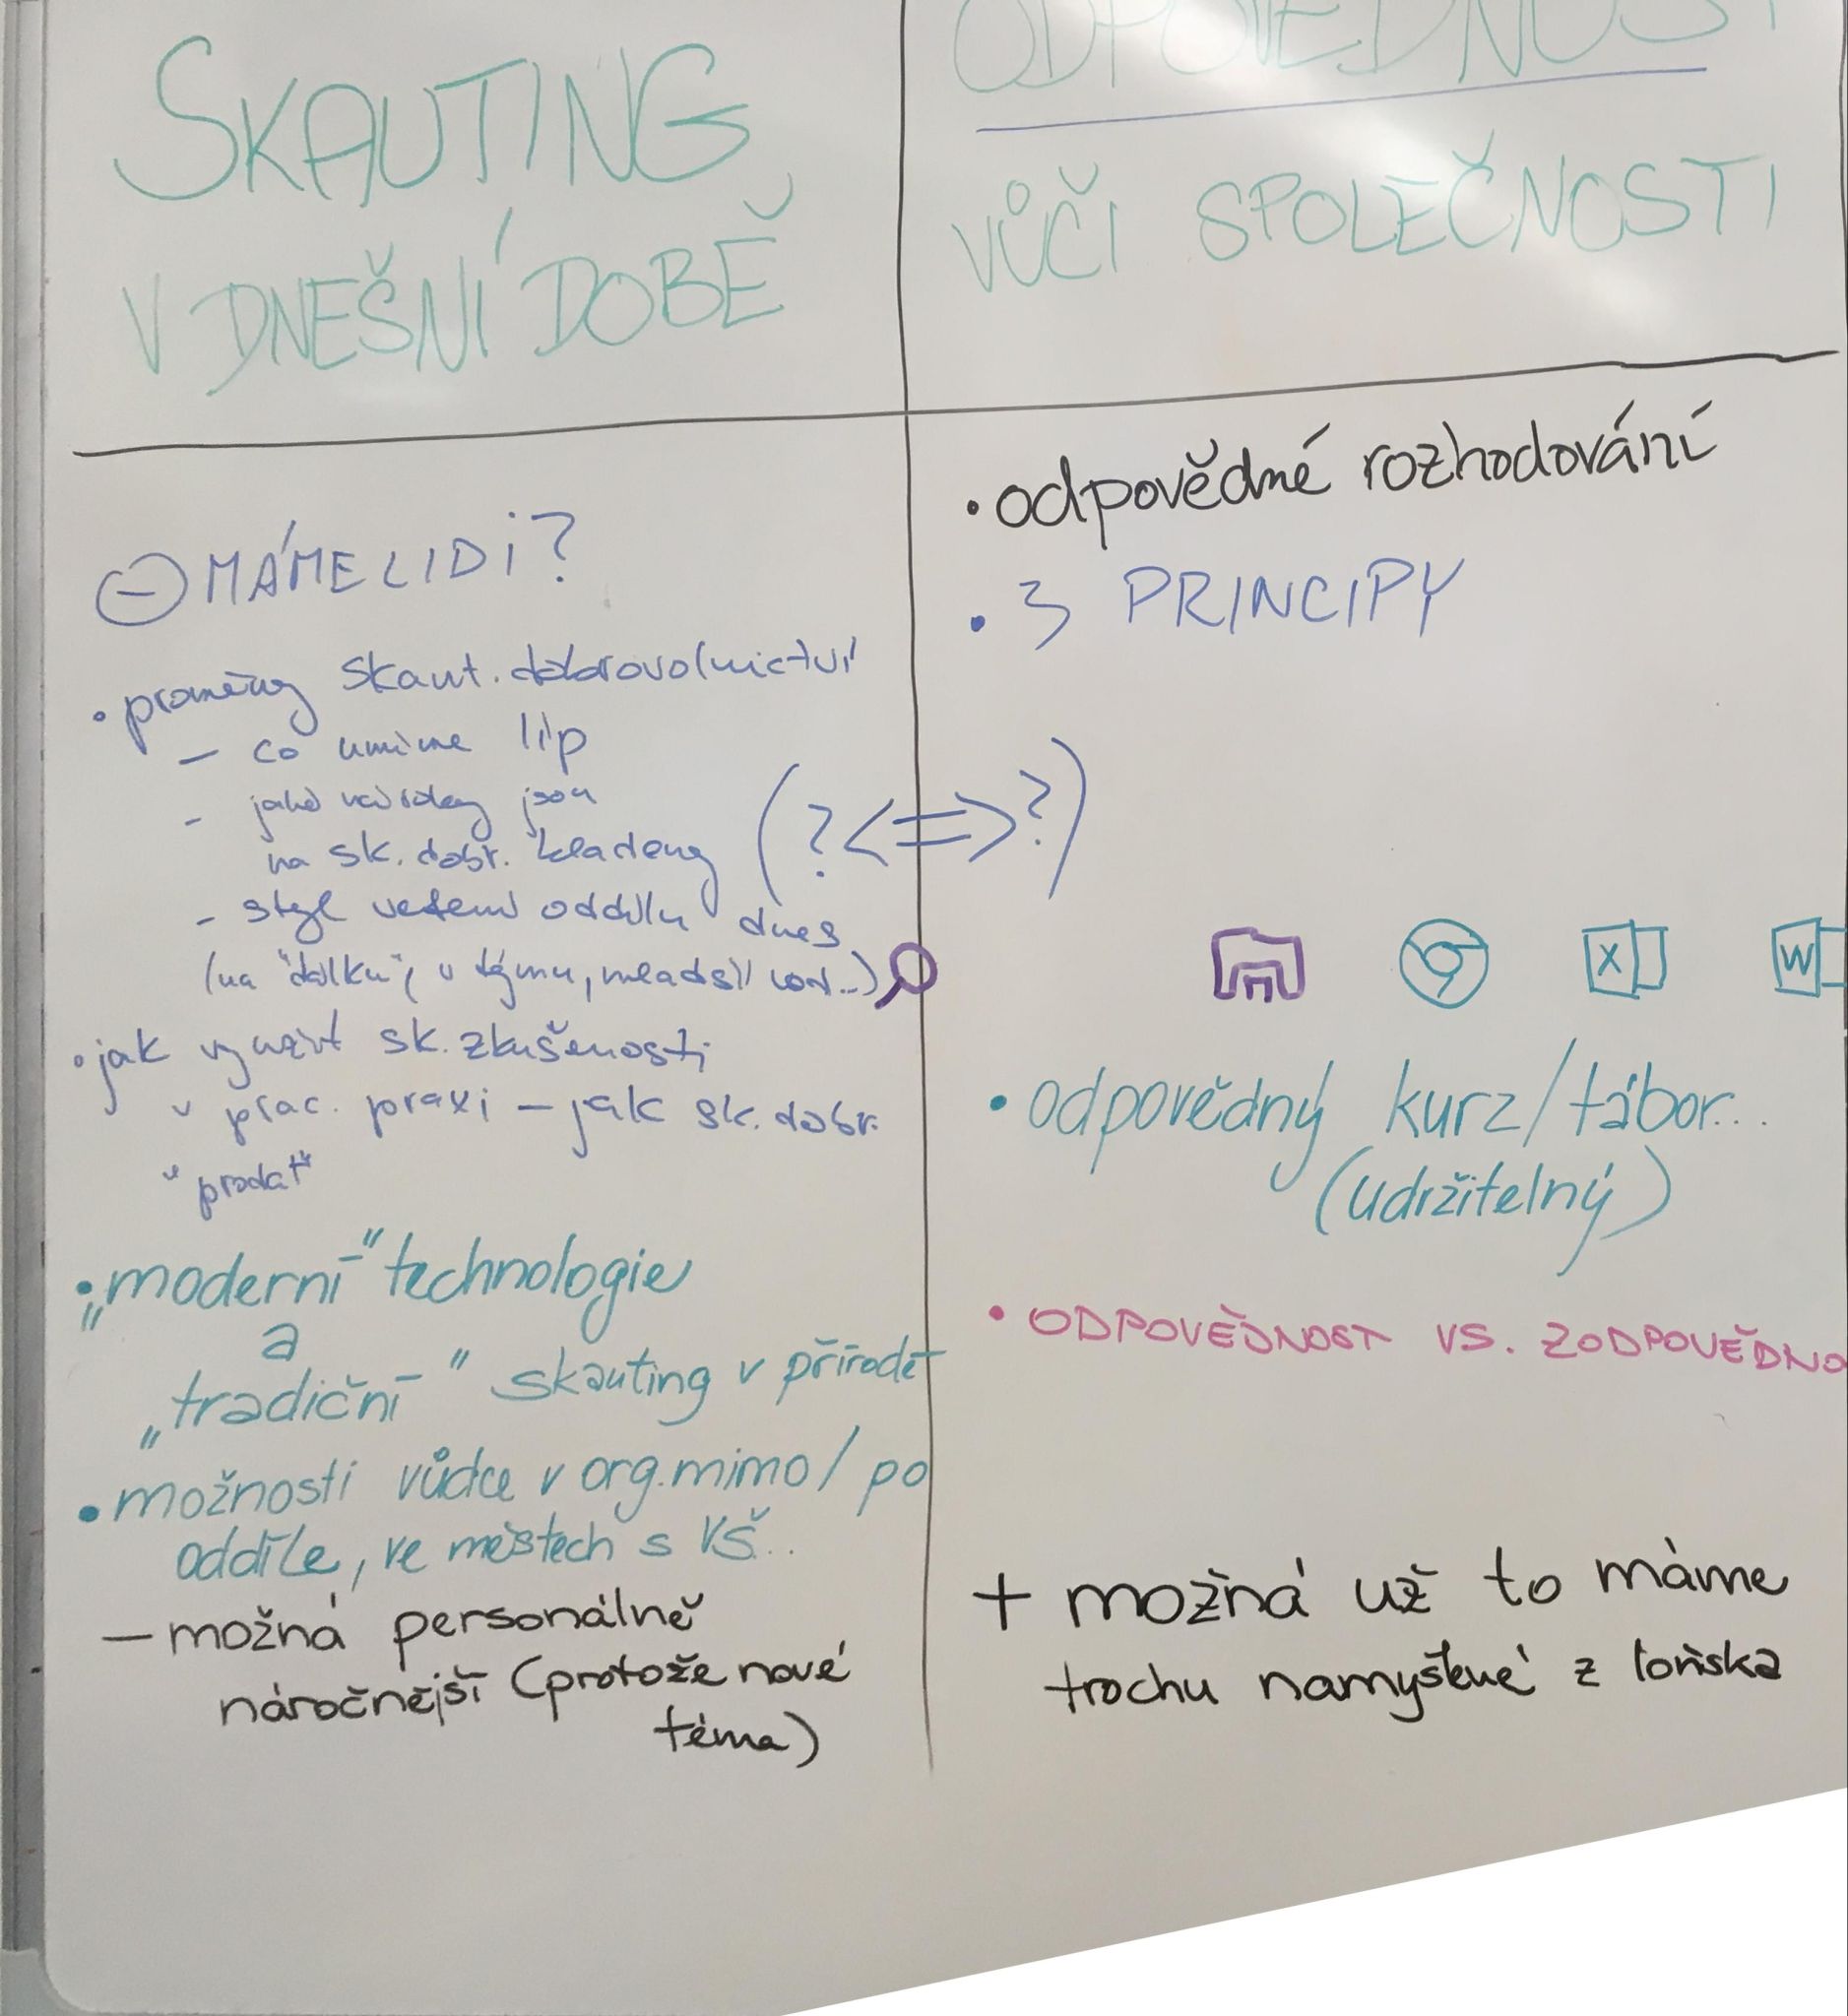 SKAUTING
V DNEŠNÍ DOBĚ
⊖ MÁME LIDI?
• proměny skaut. dobrovolnictví
- co umíme líp
- jaké nároky jsou
na sk. dobr. kladeny
- styl vedení oddílu dnes
(na "dálku", v týmu, mladší ved...)
• jak využít sk. zkušenosti
v prac. praxi - jak sk. dobr.
"prodat"
• „moderní" technologie
a
„tradiční" skauting v přírodě
• možnosti vůdce v org. mimo/po
oddíle, ve městech s VŠ...
- možná personálně
náročnější (protože nové
téma)
(?<=>?)
ODPOVĚDNOST
VŮČI SPOLEČNOSTI
• odpovědné rozhodování
• 3 PRINCIPY
X
W
• odpovědný kurz/tábor...
(udržitelný)
• ODPOVĚDNOST VS. ZODPOVĚDNO
+ možná už to máme
trochu namyšlené z loňska